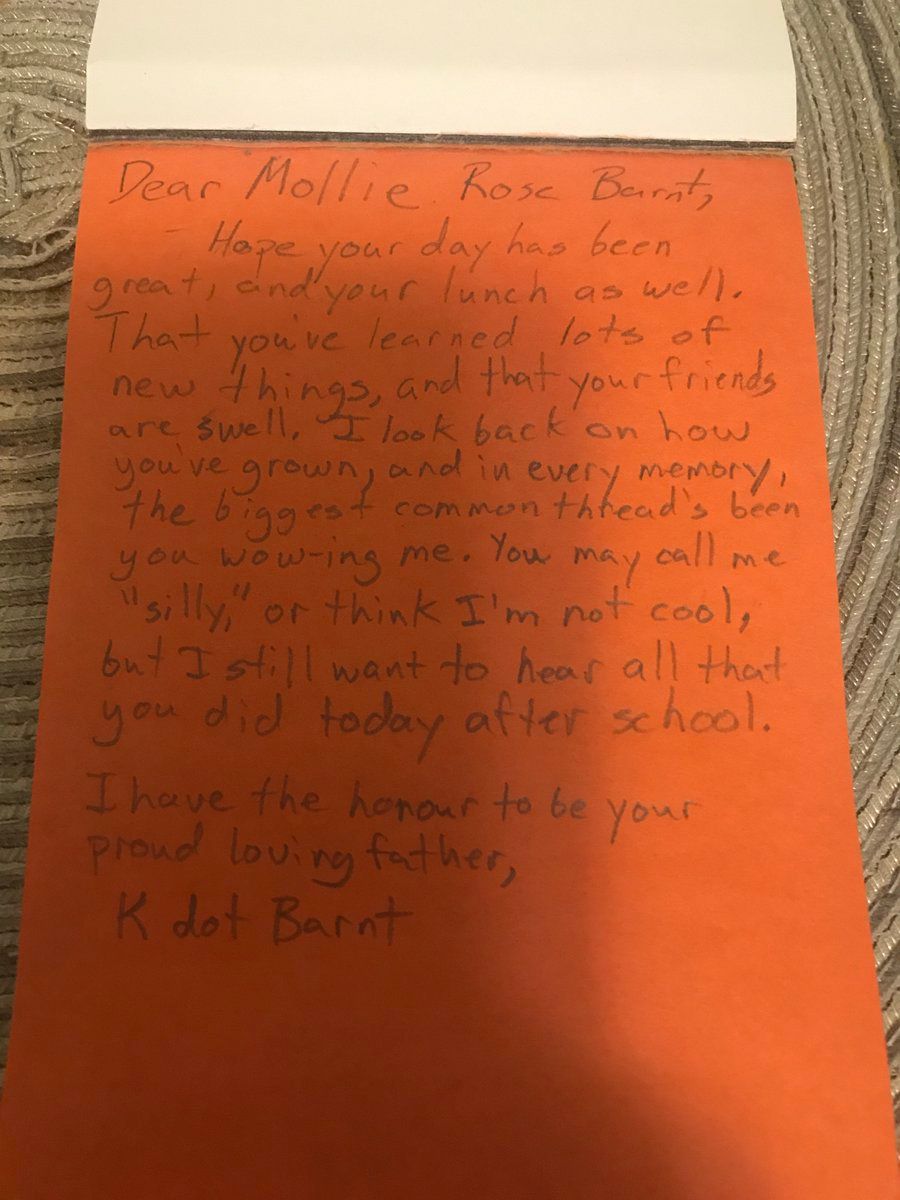 Dear Mollie Rose Barnt,
Hope your day has been
great, and your lunch as well.
That you've learned lots of
new things, and that your friends
are swell. I look back on how
you've grown, and in every memory,
the biggest common thread's been
you wow-ing me. You may call me
"silly," or think I'm not cool,
but I still want to hear all that
you did today after school.
I have the honour to be your
proud loving father,
K dot Barnt